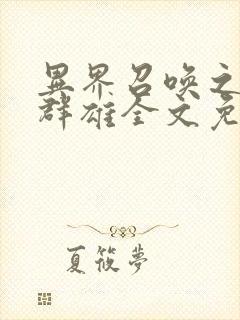 異界召喚之
群雄全文免
夏筱夢